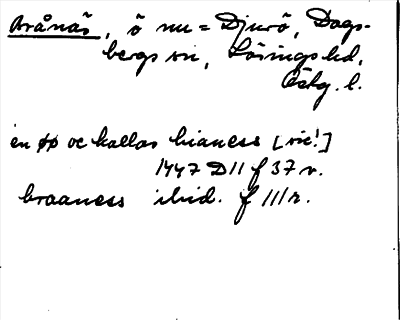 Brånäs, ö nu = Djurö, Dags-
bergs sn, Lösings hd,
Östg. l.
en øø oc kallas bianess [sic!]
1447 D 11 f 37 v.
braaness ibid. f 111 r.